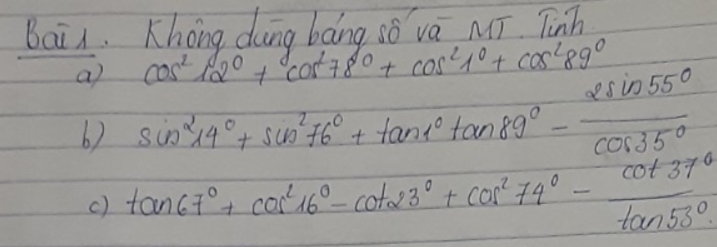 Bài 1. Không dùng bảng số và MT. Tính
a) cos²12° + cos²78° + cos²1° + cos²89°
b) sin²14° + sin²76° + tan1° tan89° - 2sin55° / cos35°
c) tan67° + cos²16° - cot23° + cos²74° - cot37° / tan53°.